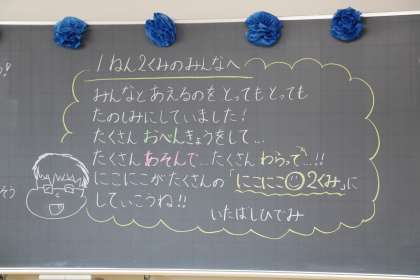 1ねん2くみのみんなへ
みんなとあえるのをとってもとっても
たのしみにしていました!
たくさんおべんきょうをして…
たくさんあそんで…たくさんわらって…!!
にこにこがたくさんの「にこにこ☺2くみ」に
していこうね!!
いたばしひでみ
そう